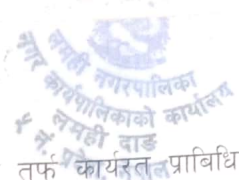 लमही नगरपालिका
नगर कार्यपालिकाको कार्यालय
लमही दाङ
तर्फ कार्यरत प्राविधि